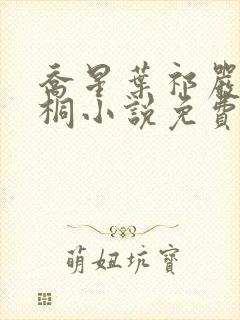 喬星葉祁嚴
桐小說免費
萌妞坑寶